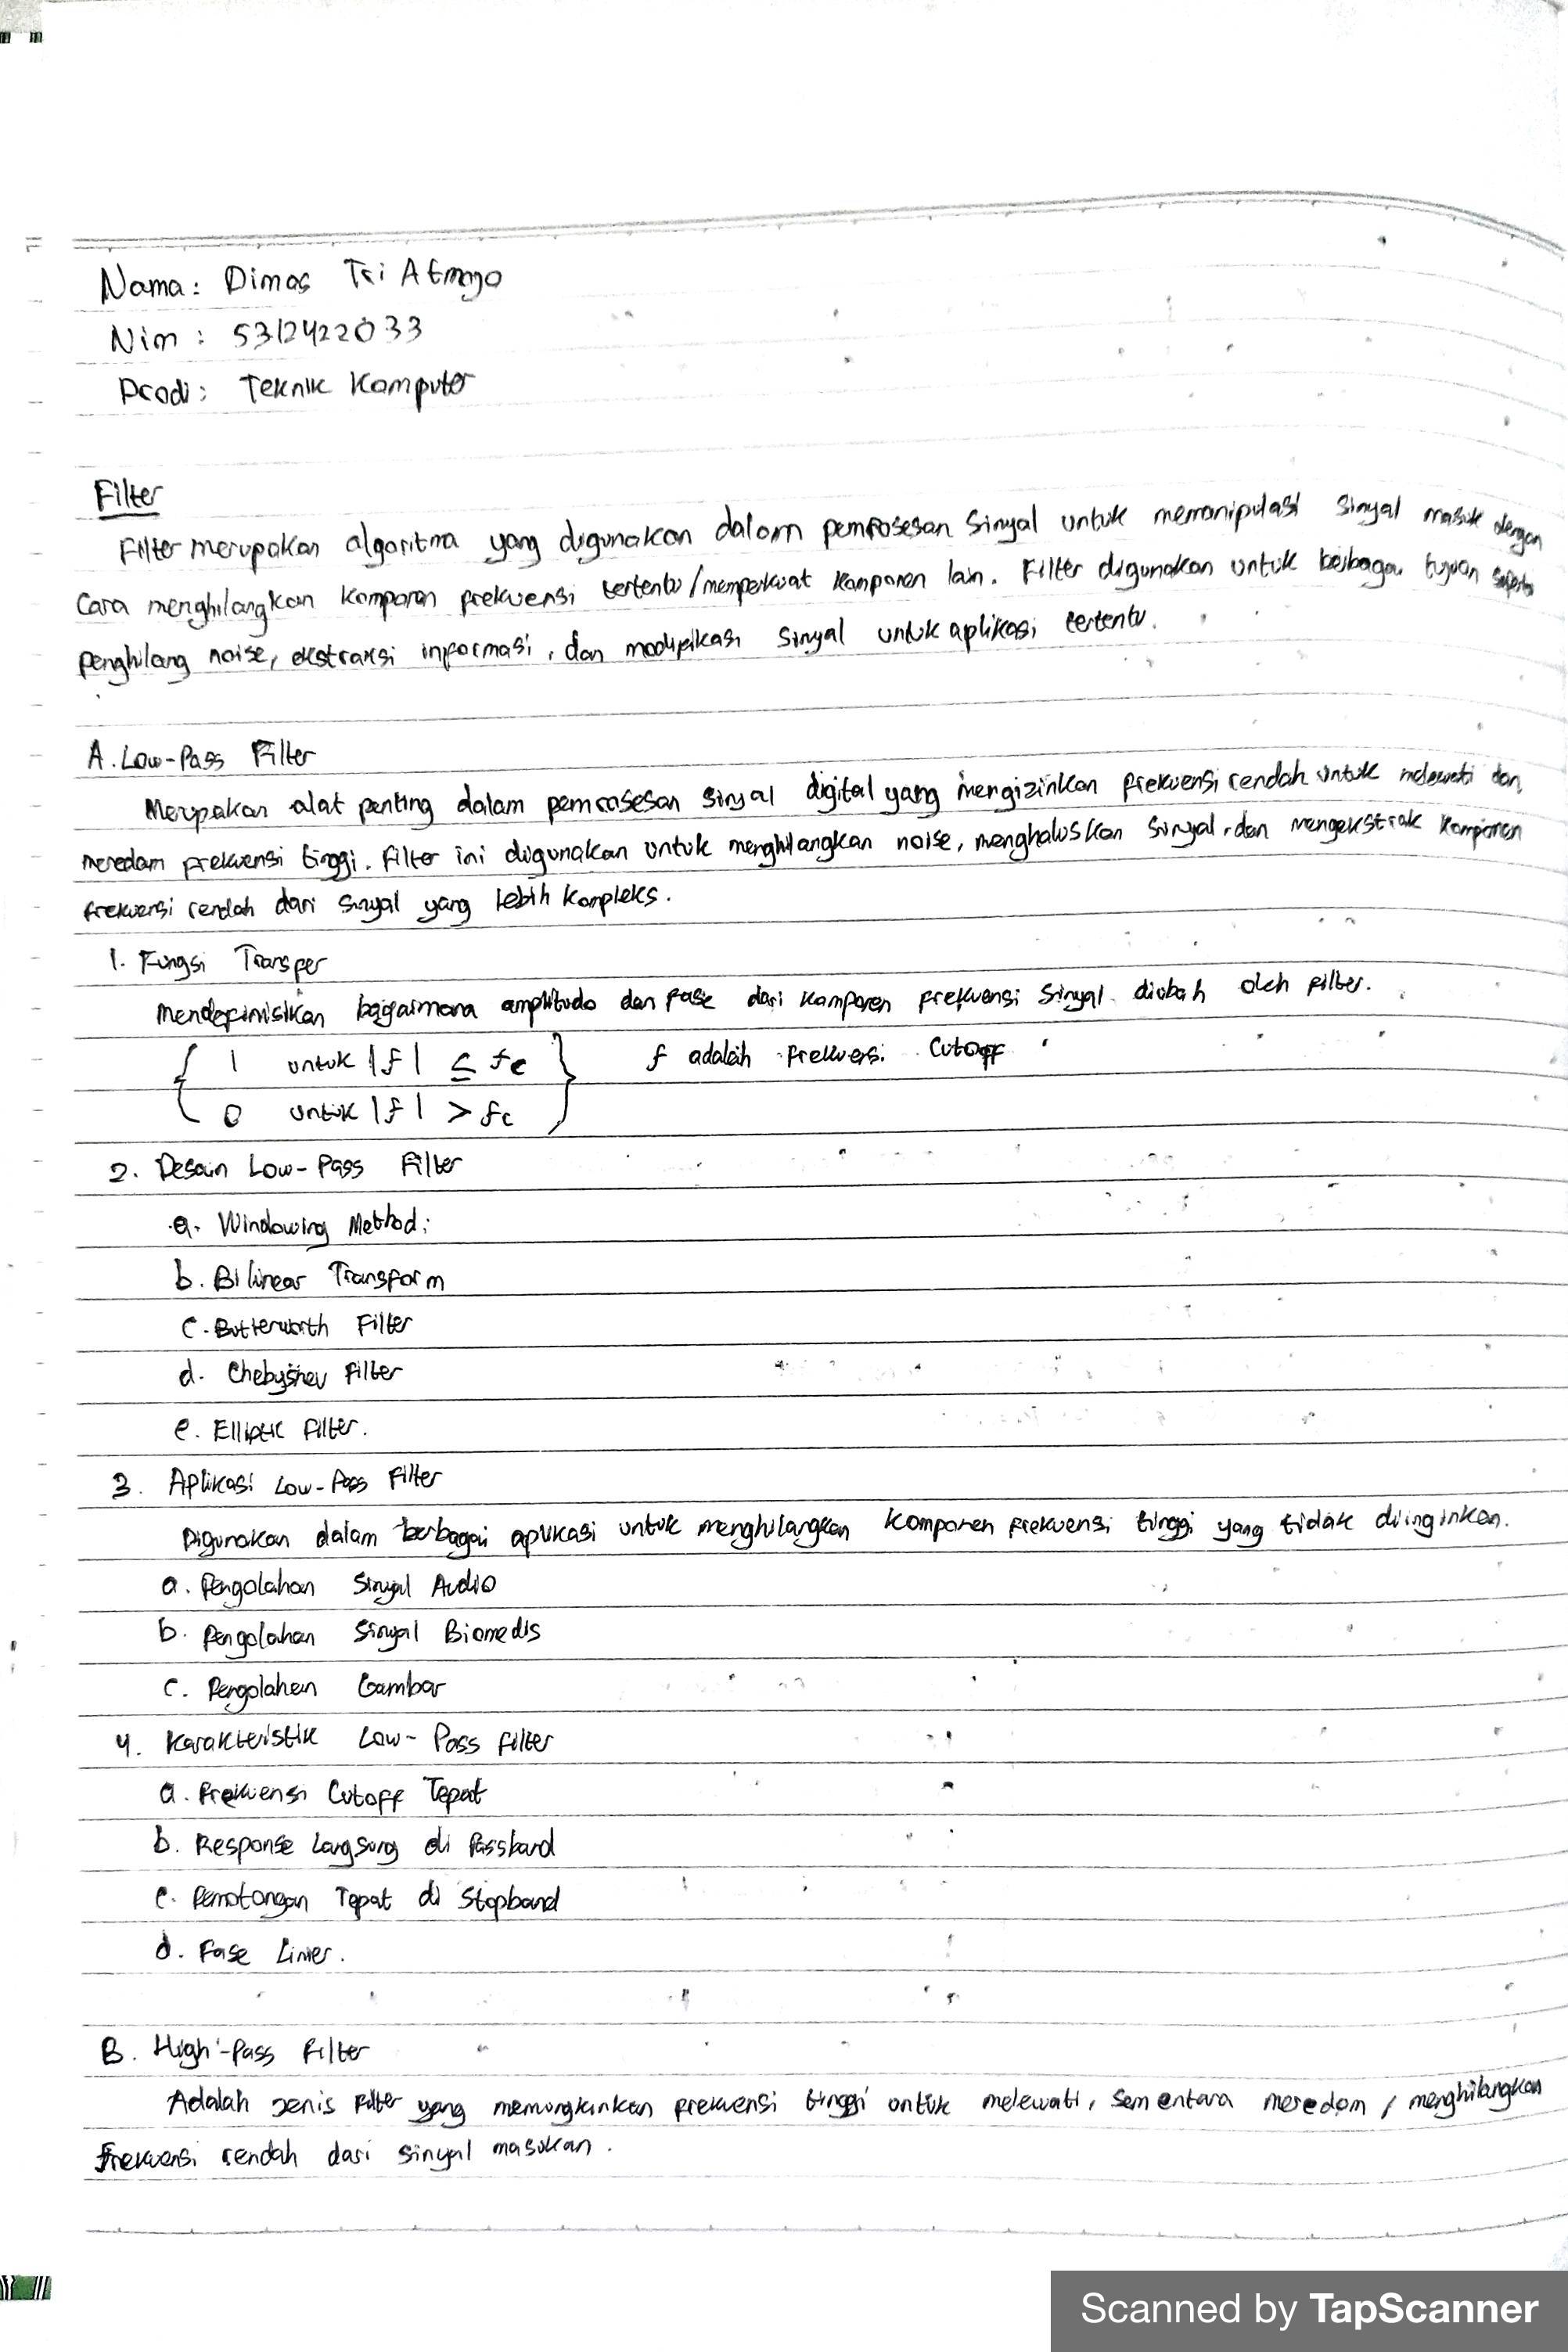 Nama: Dimas Tri Atmojo
Nim : 5312422033
Prodi: Teknik Komputer
Filter
Filter merupakan algoritma yang digunakan dalam pemrosesan sinyal untuk memanipulasi sinyal masuk dengan
Cara menghilangkan komponen frekuensi tertentu/memperkuat komponen lain. Filter digunakan untuk berbagai tujuan seperti
Penghilang noise, ekstraksi informasi, dan modifikasi sinyal untuk aplikasi tertentu.
A. Low-Pass Filter
Merupakan alat penting dalam pemrosesan sinyal digital yang mengizinkan frekuensi rendah untuk melewati dan
meredam frekuensi tinggi. Filter ini digunakan untuk menghilangkan noise, menghaluskan sinyal, dan mengekstrak komponen
frekuensi rendah dari sinyal yang lebih kompleks.
1. Fungsi Transfer
Mendefinisikan bagaimana amplitudo dan fase dari komponen frekuensi sinyal diubah oleh filter.
{ 1 untuk |f| ≤ fc } f adalah frekuensi Cutoff
0 untuk |f| > fc
2. Desain Low-Pass Filter
a. Windowing Method:
b. Bilinear Transform
c. Butterworth Filter
d. Chebyshev Filter
e. Elliptic Filter.
3. Aplikasi Low-Pass Filter
Digunakan dalam berbagai aplikasi untuk menghilangkan komponen frekuensi tinggi yang tidak diinginkan.
a. Pengolahan Sinyal Audio
b. Pengolahan Sinyal Biomedis
c. Pengolahan Gambar
4. Karakteristik Low-Pass Filter
a. Frekuensi Cutoff Tepat
b. Response Langsung di Passband
c. Pemotongan Tepat di Stopband
d. Fase Linier.
B. High-Pass Filter
Adalah jenis filter yang memungkinkan frekuensi tinggi untuk melewati, sementara meredam / menghilangkan
frekuensi rendah dari sinyal masukan.
Scanned by TapScanner